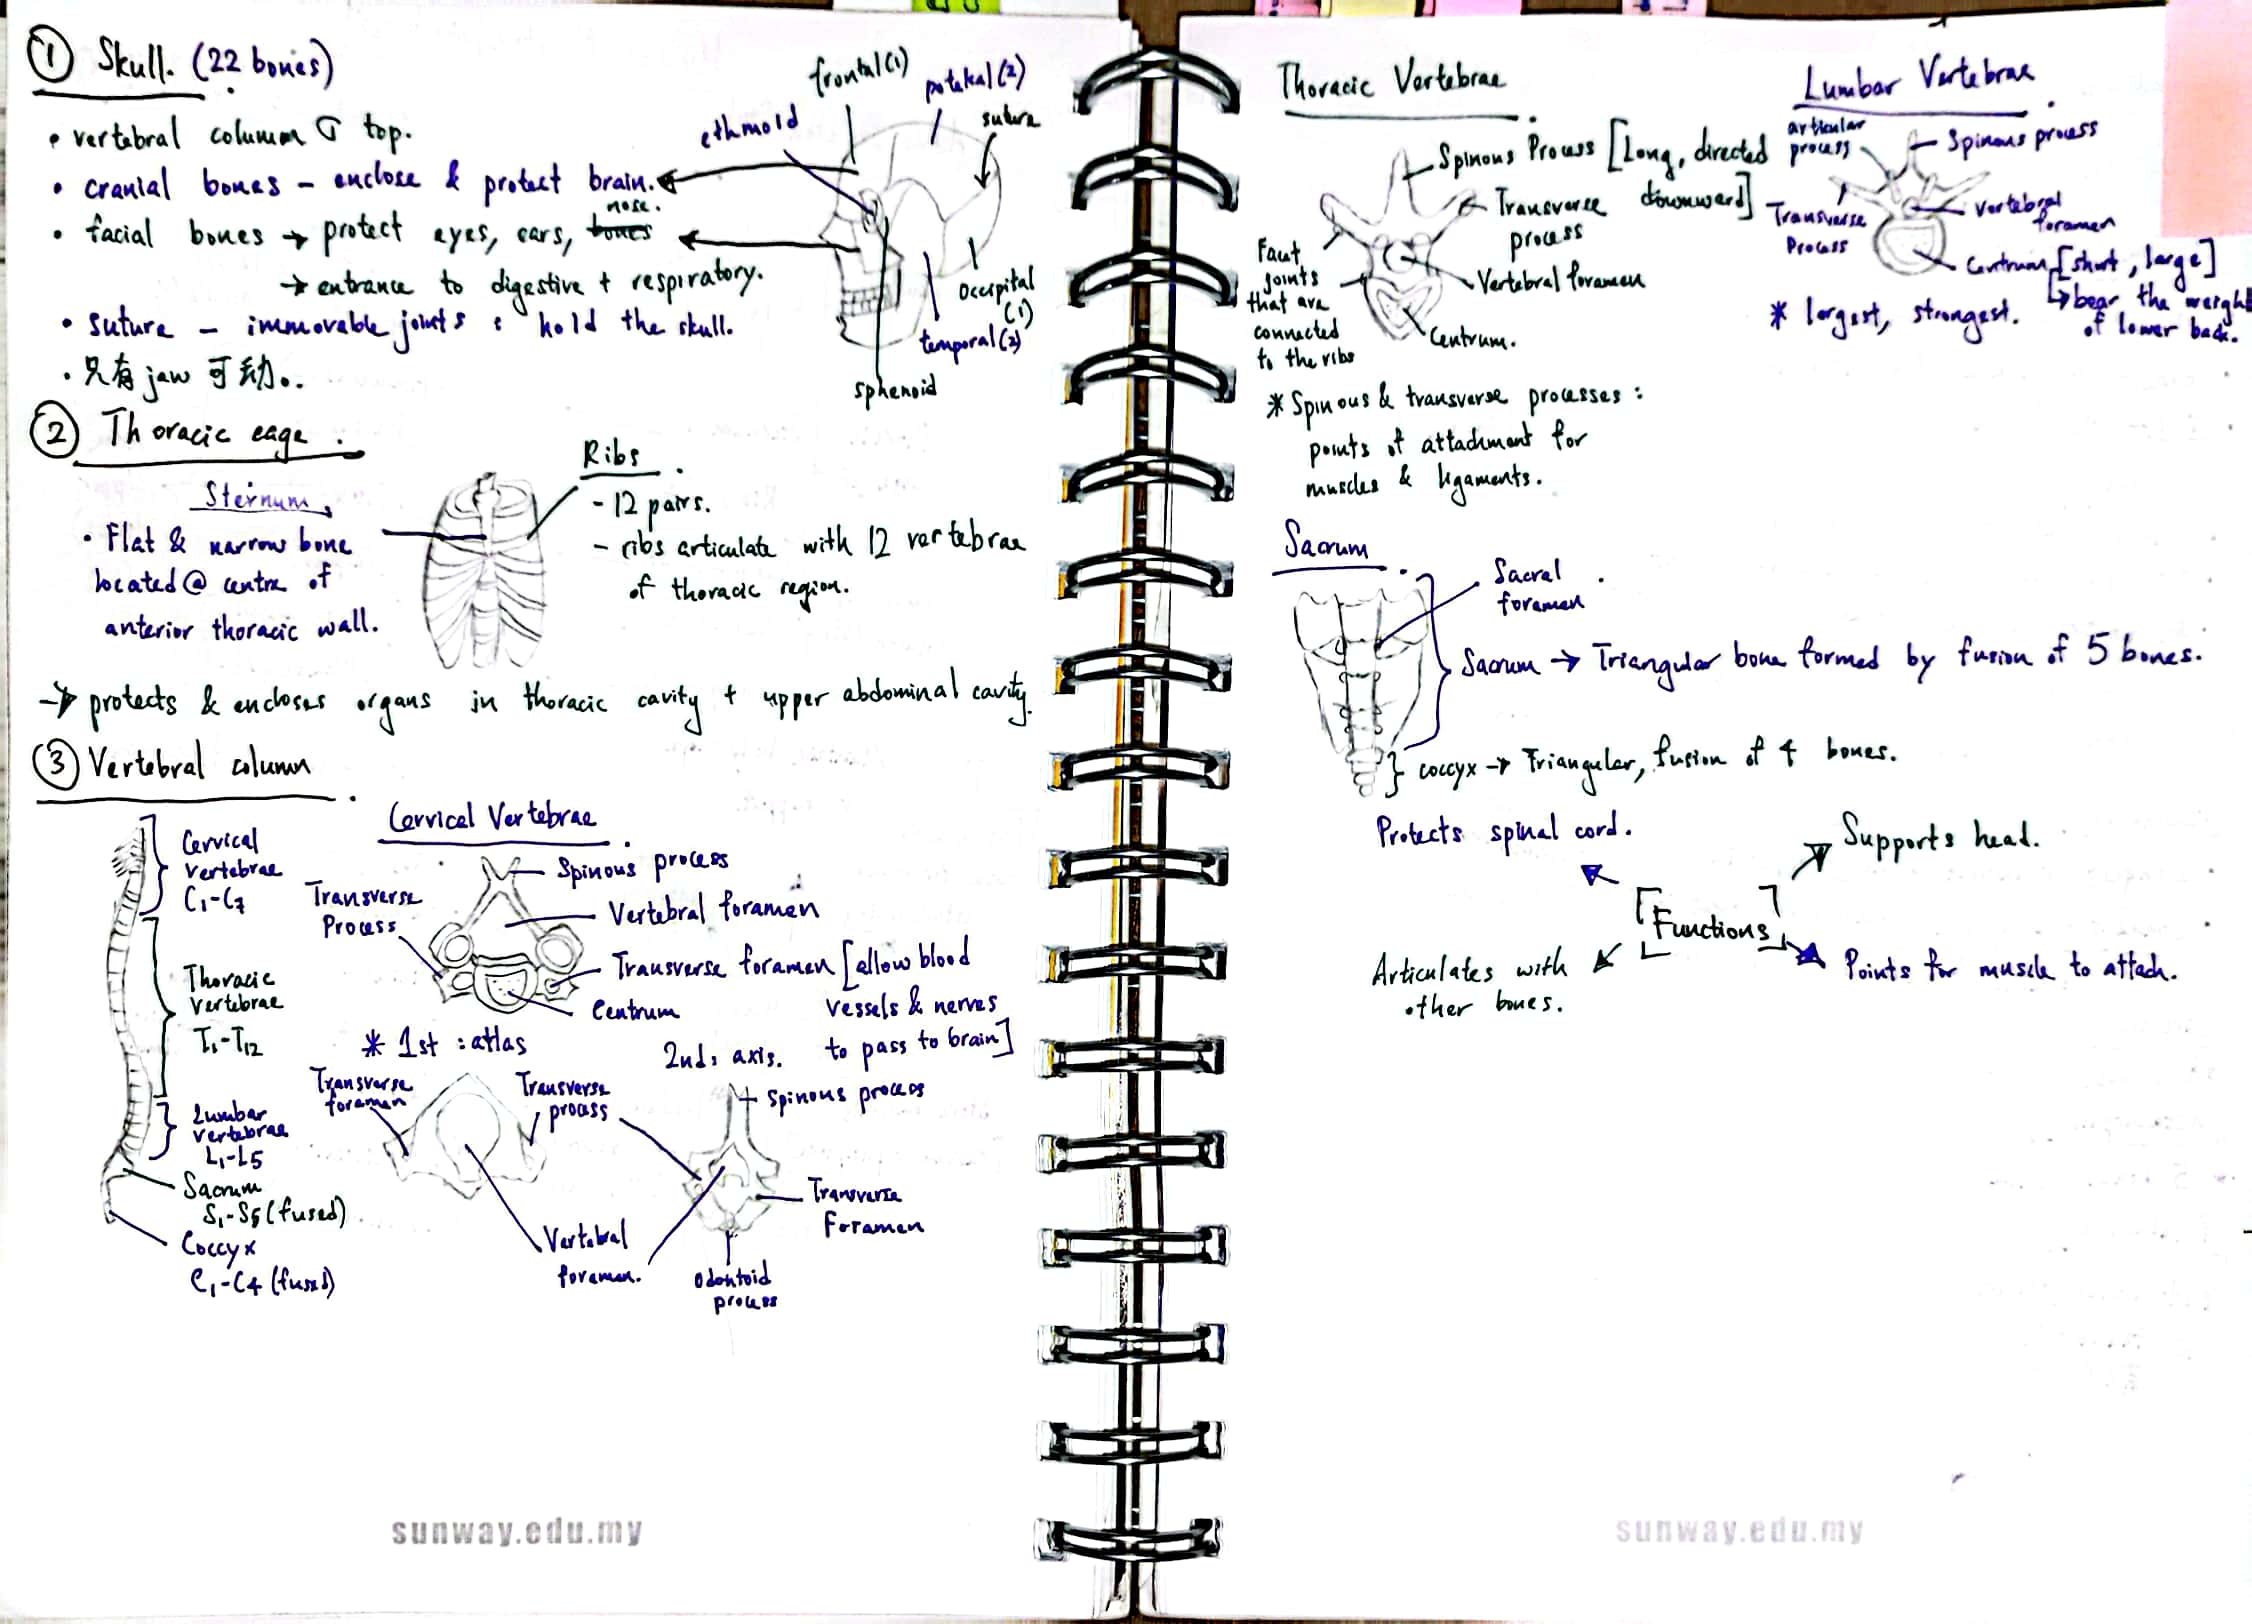 ① Skull. (22 bones)
• vertebral column top.
• cranial bones - enclose & protect brain.
• facial bones → protect eyes, ears, bones nose.
→ entrance to digestive + respiratory.
• suture - immovable joints : hold the skull.
• 只有 jaw 可动.
frontal (1)
potekal (2)
suture
ethmoid
occipital (1)
temporal (2)
sphenoid
② Thoracic cage.
Sternum
• Flat & narrow bone
located @ centre of
anterior thoracic wall.
Ribs
- 12 pairs.
- ribs articulate with 12 vertebrae
of thoracic region.
→ protects & encloses organs in thoracic cavity + upper abdominal cavity.
③ Vertebral column
Cervical
vertebrae
C1-C7
Thoracic
vertebrae
T1-T12
Lumbar
vertebrae
L1-L5
Sacrum
S1-S5 (fused)
Coccyx
C1-C4 (fused)
Cervical Vertebrae
Spinous process
Transverse
Process
Vertebral foramen
Transverse foramen [allow blood
vessels & nerves
to pass to brain]
Centrum
* 1st : atlas
2nd : axis.
Transverse
foramen
Transverse
process
Spinous process
Vertebral
foramen.
Transverse
Foramen
Odontoid
process
sunway.edu.my
Thoracic Vertebrae
Spinous Process [Long, directed
downward]
Transverse
process
Facet
joints
that are
connected
to the ribs
Vertebral foramen
Centrum.
* Spinous & transverse processes :
points of attachment for
muscles & ligaments.
Lumbar Vertebrae
articular
process
Spinous process
Transverse
Process
vertebral
foramen
Centrum [short, large]
↳ bear the weight
of lower back.
* largest, strongest.
Sacrum
Sacral
foramen
Sacrum → Triangular bone formed by fusion of 5 bones.
coccyx → Triangular, fusion of 4 bones.
Protects spinal cord.
Supports head.
[Functions]
Articulates with
other bones.
Points for muscle to attach.
sunway.edu.my